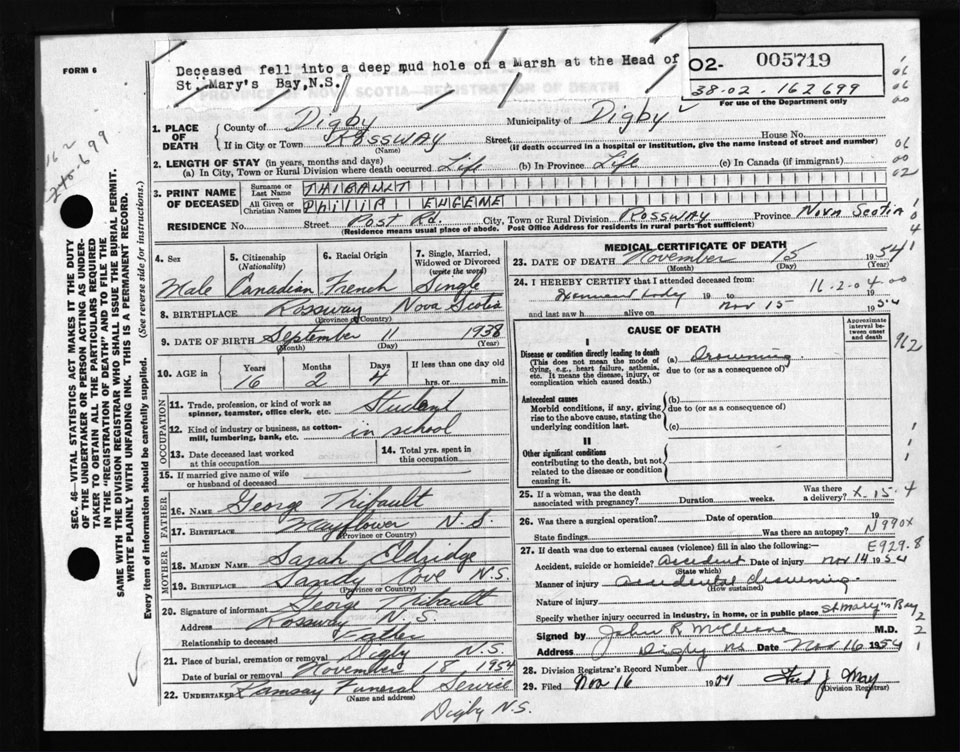 FORM 6
Deceased fell into a deep mud hole on a Marsh at the Head of
St. Mary's Bay, N.S.
O2- 005719
38-02-162699
For use of the Department only
1. PLACE OF DEATH
County of Digby Municipality of Digby
If in City or Town Rossway Street House No.
(Name) (If death occurred in a hospital or institution, give the name instead of street and number)
2. LENGTH OF STAY (in years, months and days)
(a) In City, Town or Rural Division where death occurred Life (b) In Province Life (c) In Canada (if immigrant)
3. PRINT NAME OF DECEASED
Surname or Last Name THIBAULT
All Given or Christian Names PHILLIP EUGENE
RESIDENCE No. Street Post Rd. City, Town or Rural Division Rossway Province Nova Scotia
(Residence means usual place of abode. Post Office Address for residents in rural parts not sufficient)
4. Sex Male
5. Citizenship (Nationality) Canadian
6. Racial Origin French
7. Single, Married, Widowed or Divorced (write the word) Single
8. BIRTHPLACE Rossway Nova Scotia
(Province or Country)
9. DATE OF BIRTH September 11 1938
(Month) (Day) (Year)
10. AGE in Years 16 Months 2 Days 4 If less than one day old hrs. or min.
OCCUPATION
11. Trade, profession, or kind of work as spinner, teamster, office clerk, etc. Student
12. Kind of industry or business, as cotton-mill, lumbering, bank, etc. in school
13. Date deceased last worked at this occupation
14. Total yrs. spent in this occupation
15. If married give name of wife or husband of deceased
FATHER
16. NAME George Thibault
17. BIRTHPLACE Mayflower N.S.
(Province or Country)
MOTHER
18. MAIDEN NAME Sarah Eldridge
19. BIRTHPLACE Sandy Cove N.S.
(Province or Country)
20. Signature of informant George Thibault
Address Rossway N.S.
Relationship to deceased Father
21. Place of burial, cremation or removal Digby N.S.
Date of burial or removal November 18 1954
22. UNDERTAKER Ramsay Funeral Service
(Name and address)
Digby N.S.
MEDICAL CERTIFICATE OF DEATH
23. DATE OF DEATH November 15 1954
(Month) (Day) (Year)
24. I HEREBY CERTIFY that I attended deceased from: 16-2-04-00
19 to Nov 15 1954
and last saw h alive on 19
CAUSE OF DEATH
Approximate interval between onset and death
I
Disease or condition directly leading to death (a) Drowning
(This does not mean the mode of dying, e.g., heart failure, asthenia, etc. It means the disease, injury, or complication which caused death.)
due to (or as a consequence of)
Antecedent causes
Morbid conditions, if any, giving rise to the above cause, stating the underlying condition last.
(b)
due to (or as a consequence of)
(c)
II
Other significant conditions
contributing to the death, but not related to the disease or condition causing it.
962
25. If a woman, was the death associated with pregnancy? Duration weeks. Was there a delivery? X-15-4
26. Was there a surgical operation? Date of operation 19
State findings Was there an autopsy? N990X
27. If death was due to external causes (violence) fill in also the following:— E929.8
Accident, suicide or homicide? Accident Date of injury Nov 14 1954
(State which)
Manner of injury Accidental drowning.
(How sustained)
Nature of injury
Specify whether injury occurred in industry, in home, or in public place St Mary's Bay
Signed by John R McCleave M.D.
Address Digby NS Date Nov 16 1954
28. Division Registrar's Record Number
29. Filed Nov 16 1954 Fred J May
(Division Registrar)
SEC. 46—VITAL STATISTICS ACT MAKES IT THE DUTY
OF THE UNDERTAKER OR PERSON ACTING AS UNDER-
TAKER TO OBTAIN ALL THE PARTICULARS REQUIRED
IN THE "REGISTRATION OF DEATH" AND TO FILE THE
SAME WITH THE DIVISION REGISTRAR WHO SHALL ISSUE THE BURIAL PERMIT.
WRITE PLAINLY WITH UNFADING INK. THIS IS A PERMANENT RECORD.
Every item of Information should be carefully supplied. (See reverse side for instructions.)